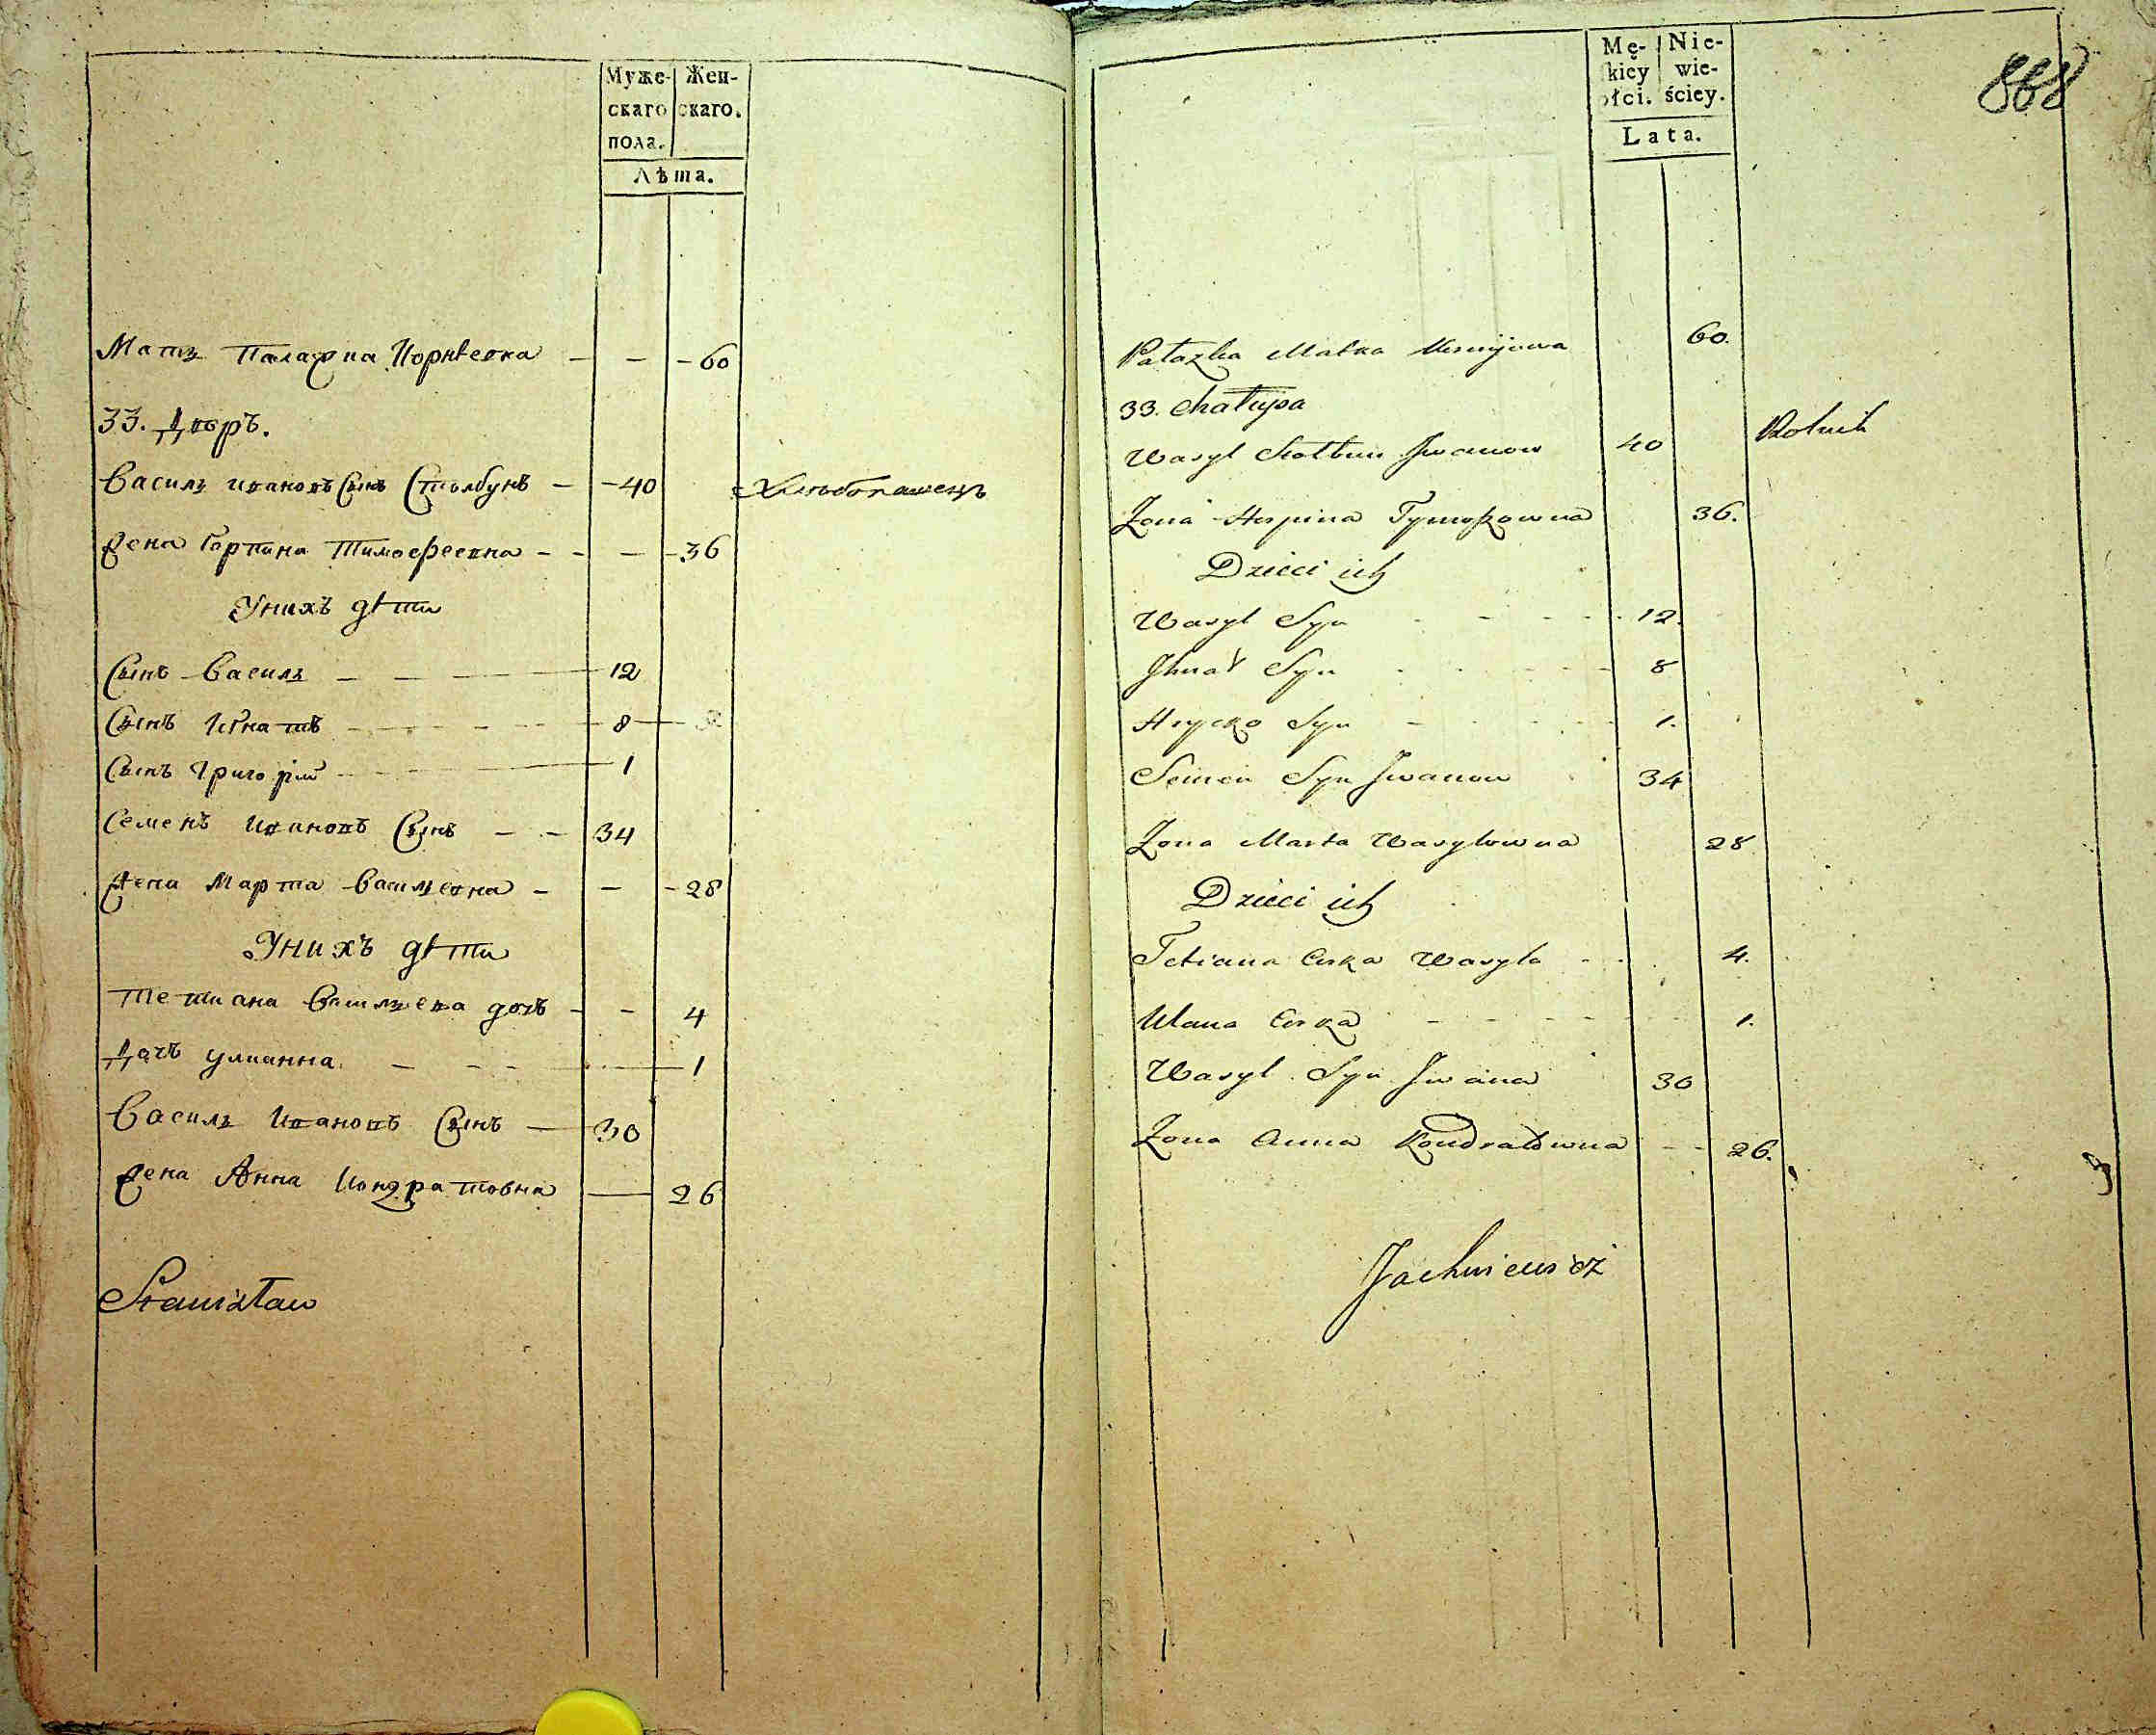 Муже- Жен-
скаго скаго.
пола.
Лѣта.
Мать Палажка Корнѣевна — — - 60
33. Дворъ.
Василь Ивановъ Сынъ Столбунъ — - 40 Хлѣбопашецъ
Жена Горпина Тимофеевна - - — - 36
У нихъ дѣти
Сынъ Василь — — — 12
Сынъ Игнатъ - - - 8
Сынъ Григорій - - 1
Семенъ Ивановъ Сынъ — - 34
Жена Марта Васильевна - — - 28
У нихъ дѣти
Тетиана Васильева дочь - - 4
Дочь Улианна — - - 1
Василь Ивановъ Сынъ — 30
Жена Анна Кондратовна — 26
Stanisław
868
Mę- Nie-
kiey wie-
płci. ściey.
Lata.
Pałazka Matka 60.
33. Chałupa
Wasyl Stołbun Jwanow 40 Rolnik
Zona Horpina Tymoszowna 36.
Dzieci ich
Wasyl Syn - - - - 12.
Jhnat Syn - - - - 8
Hrycko Syn - - - 1.
Semen Syn Jwanow 34
Zona Marta Wasylowna 28
Dzieci ich
Tetiana Corka Wasyla - - 4.
Ulana Corka - - - - 1.
Wasyl Syn Jwana 30
Zona Anna Kondratowna - - 26.
Jachniewicz